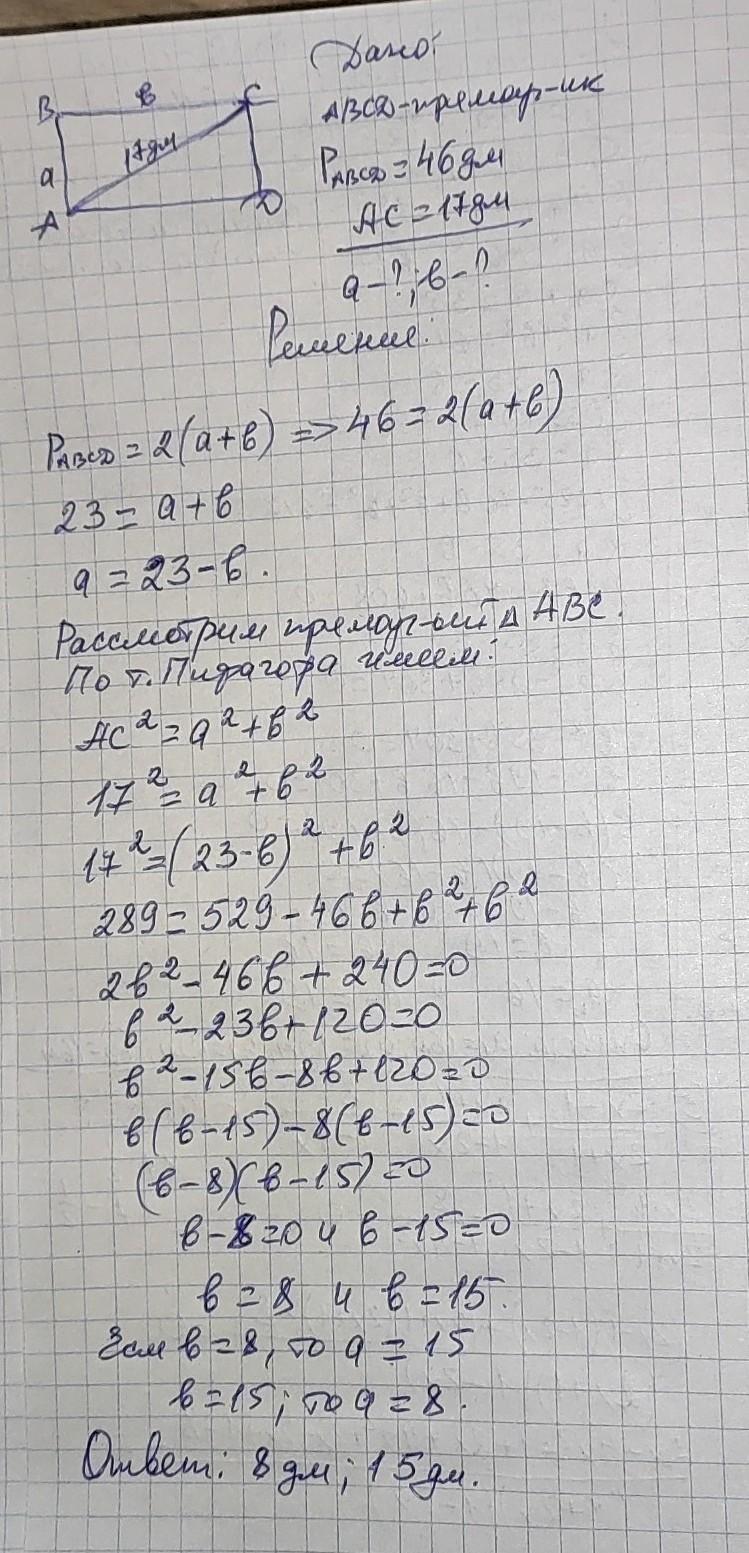 Дано:
B в C
17дм
a
A D
ABCD-прямоуг-ик
P_ABCD = 46дм
AC = 17дм
a-?; в-?
Решение:
P_ABCD = 2(a+в) => 46 = 2(a+в)
23 = a+в
a = 23-в.
Рассмотрим прямоуг-ый Δ ABC.
По т. Пифагора имеем:
AC² = a²+в²
17² = a²+в²
17² = (23-в)² + в²
289 = 529 - 46в + в² + в²
2в² - 46в + 240 = 0
в² - 23в + 120 = 0
в² - 15в - 8в + 120 = 0
в(в-15) - 8(в-15) = 0
(в-8)(в-15) = 0
в-8=0 и в-15=0
в = 8 и в = 15.
Если в = 8, то a = 15
в = 15; то a = 8.
Ответ: 8 дм; 15 дм.